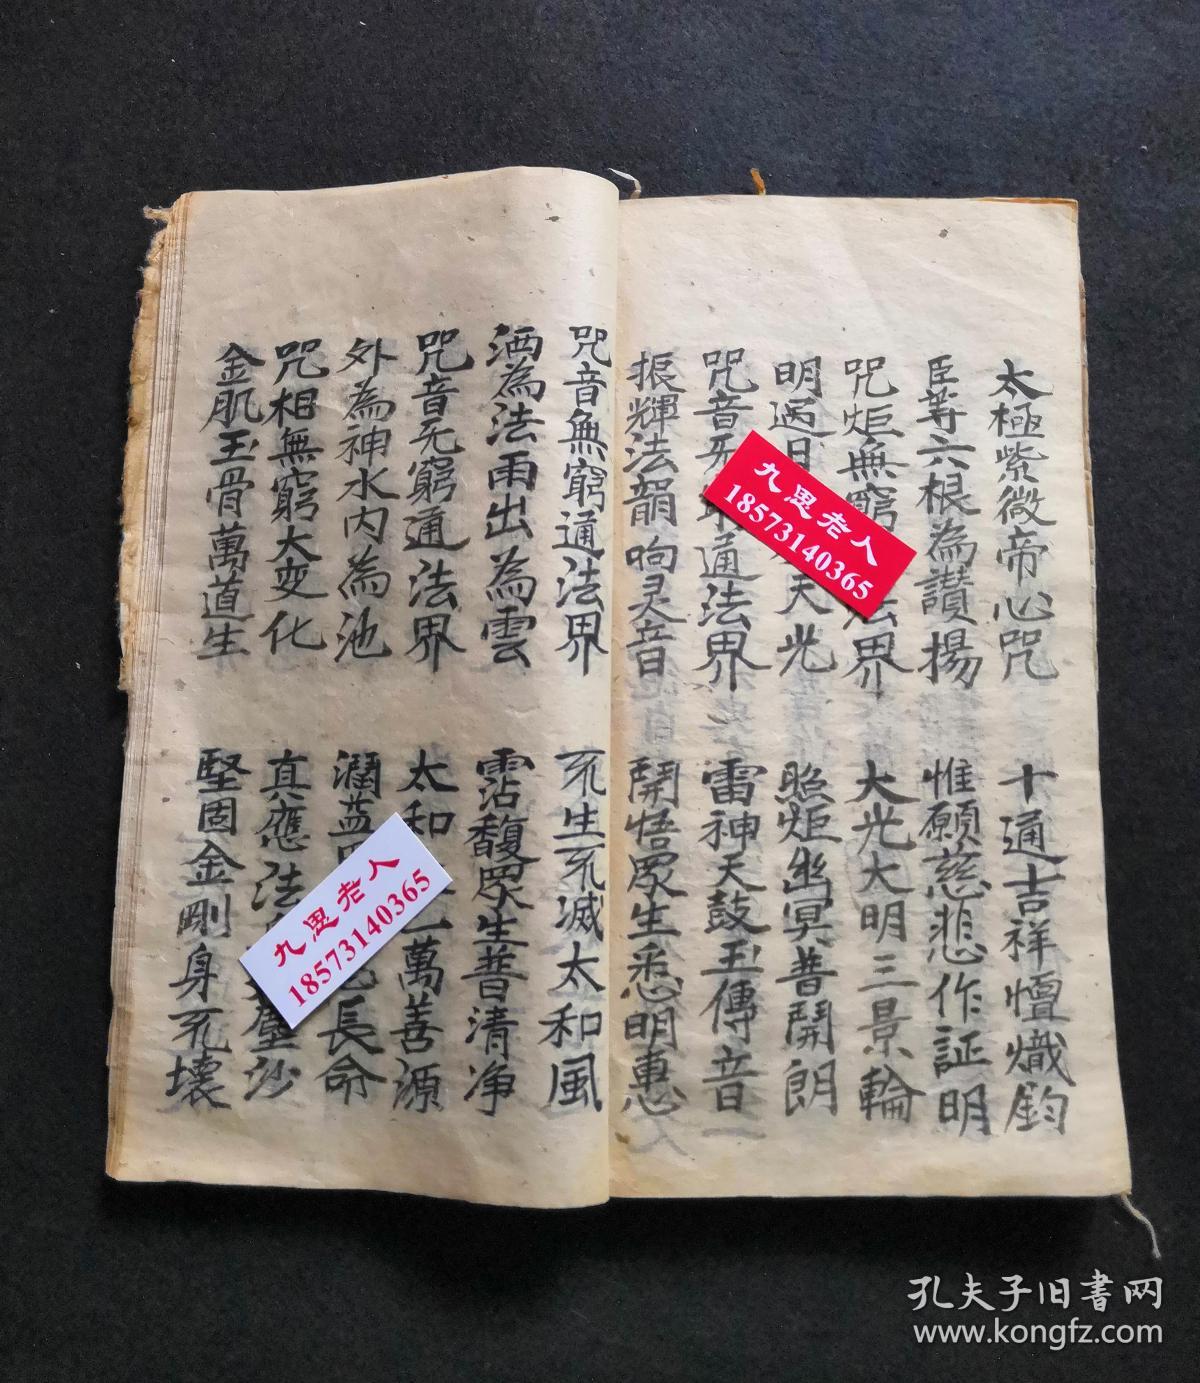 太極紫微帝心咒 十通吉祥懽熾鈞
臣等六根為讚揚 惟願慈悲作証明
咒炬無窮 法界 大光大明三景輪
明遇日 天光 照炬幽冥普開朗
咒音 通法界 雷神天鼓玉傳音
振輝法韻响灵音 開悟眾生悉明惠
咒音無窮通法界 不生不滅太和風
洒為法雨出為雲 霑馥眾生普清净
咒音无窮通法界 太和 一萬善源
外為神水內為池 潤益 長命
咒相無窮大变化 真應法 塵沙
金肌玉骨萬道生 堅固金剛身不壞
九思老人
18573140365
九思老人
18573140365
孔夫子旧书网
www.kongfz.com